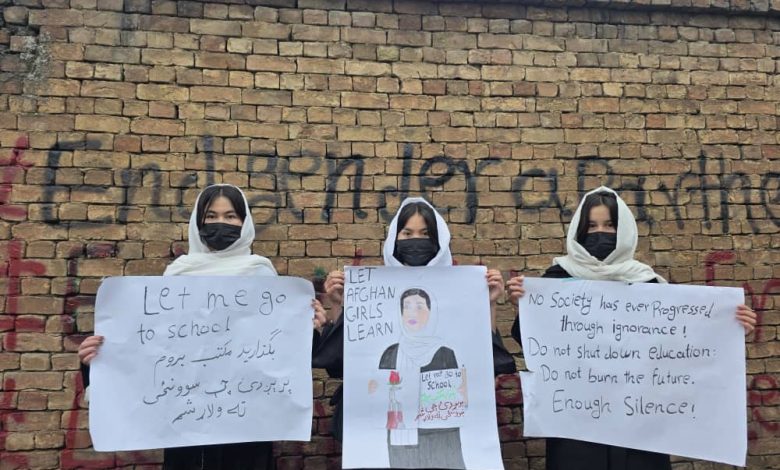 End gender apartheid
Let me go
to school
بگذارید مکتب بروم
پرېږدی چې ښوونځی
ته ولاړ شم
LET
AFGHAN
GIRLS
LEARN
Let me go to
school
No Society has ever Progressed
through ignorance!
Do not shut down education:
Do not burn the future.
Enough Silence!